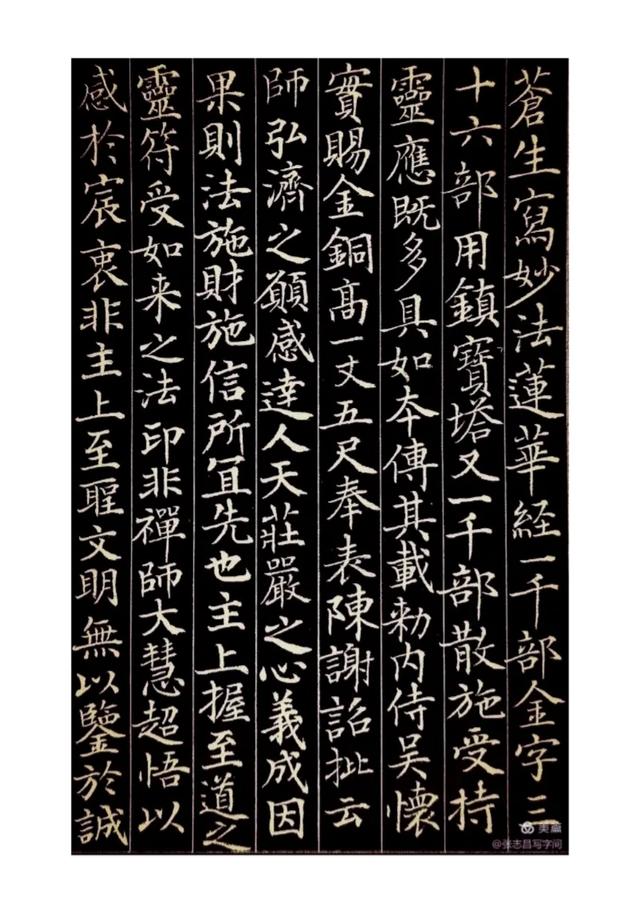 蒼生寫妙法蓮華経一千部金字三
十六部用鎮寶塔又一千部散施受持
靈應既多具如夲傳其載勅內侍吴懷
實賜金銅髙一丈五尺奉表陳謝詔批云
師弘濟之願感達人天莊嚴之心義成因
果則法施財施信所冝先也主上握至道之
靈符受如来之法印非禪師大慧超悟以
感於宸衷非主上至聖文明無以鑒於誠
美篇
@张志昌写字间